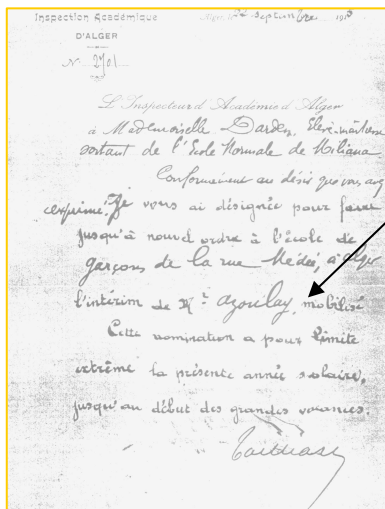 Inspection Académique
D'ALGER
N° 2701
Alger, le 22 septembre 191
L'Inspecteur d'Académie d'Alger
à Mademoiselle Darden, Elève-maîtresse
sortant de l'Ecole Normale de Miliana
Conformément au désir que vous avez
exprimé, Je vous ai désignée pour faire
jusqu'à nouvel ordre à l'école de
garçons de la rue Médée, à Alger
l'intérim de Mr Azoulay, mobilisé
Cette nomination a pour limite
extrême la présente année scolaire,
jusqu'au début des grandes vacances.